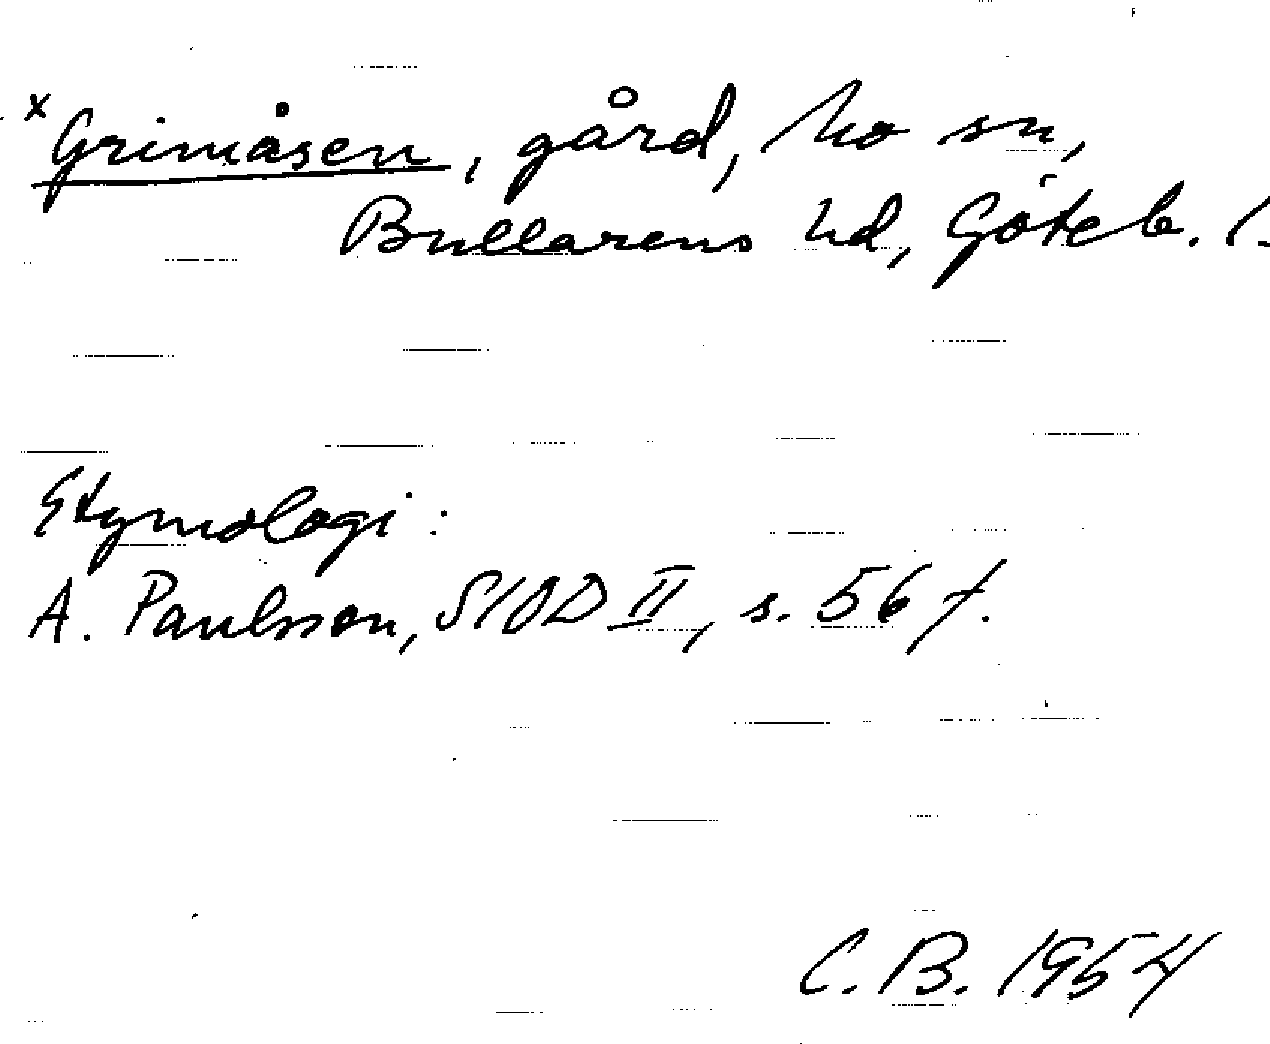 x Grimåsen, gård, Mo sn,
Bullarens hd, Göteb. l.
Etymologi:
A. Paulsson, SIOD II, s. 56 f.
C. B. 1954